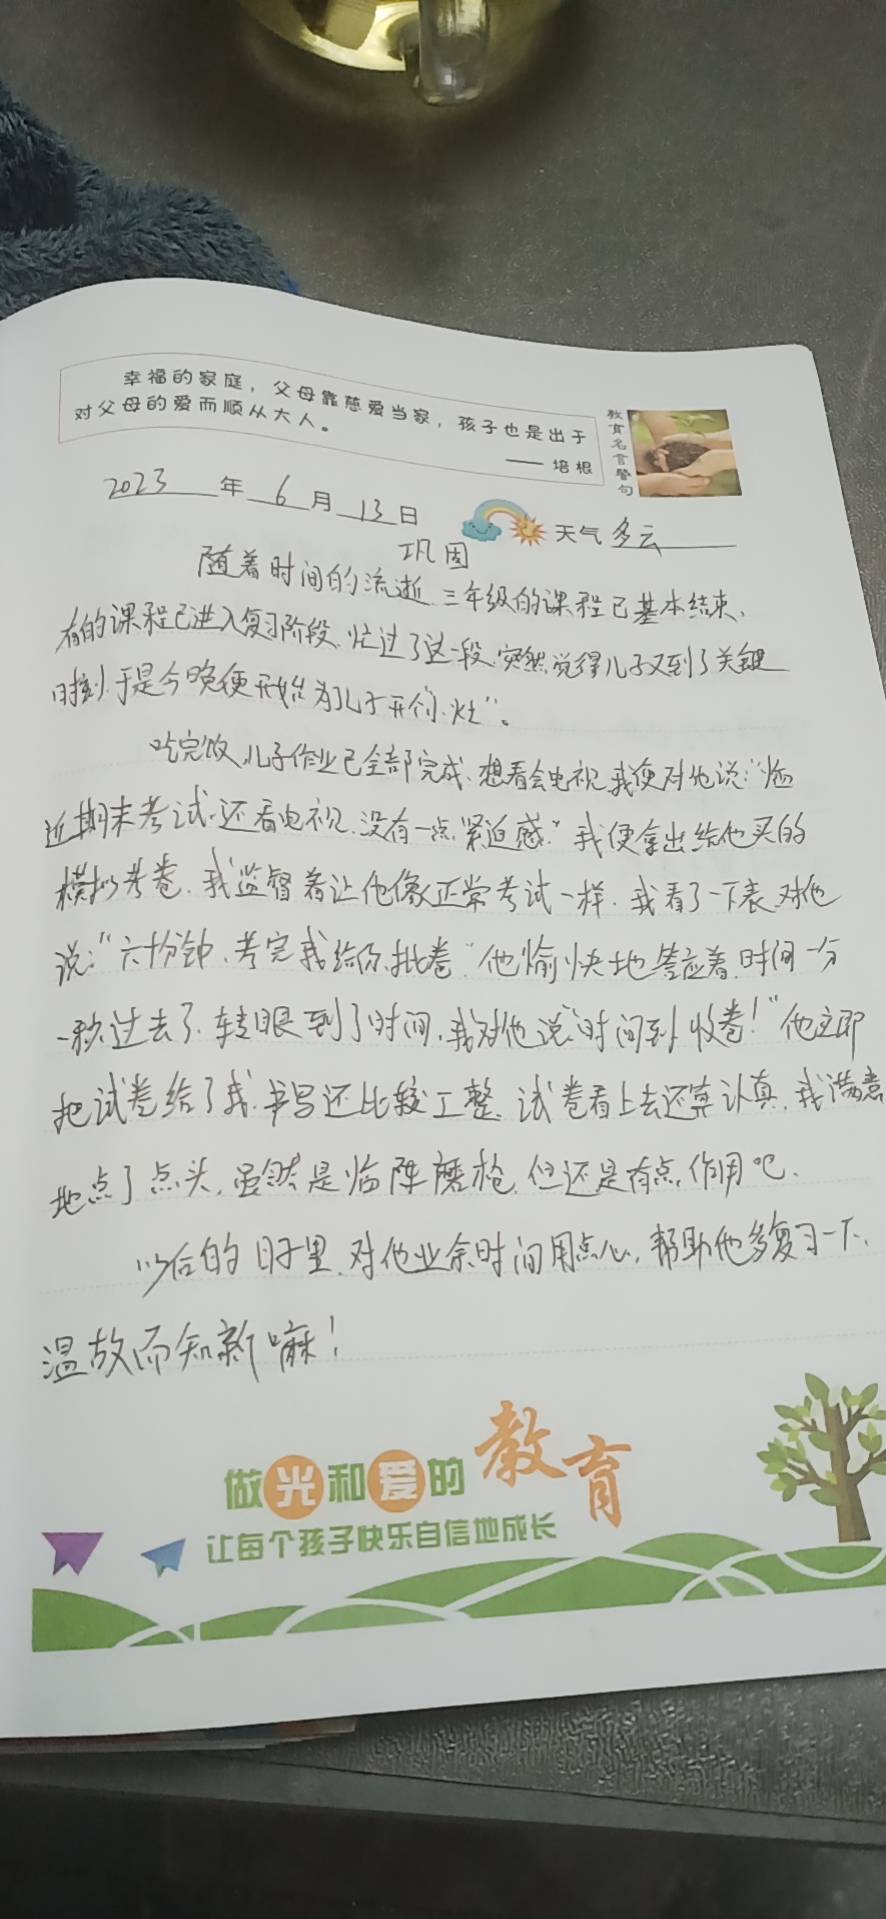 幸福的家庭，父母靠慈爱当家，孩子也是出于
对父母的爱而顺从大人。
—— 培根
教育名言警句
2023年6月13日
天气多云
巩固
随着时间的流逝.三年级的课程已基本结束、
有的课程已进入复习阶段.忙过了这一段.突然觉得儿子又到了关键
时刻.于是今晚便开始为儿子开“灶”。
吃完饭,儿子作业已全部完成、想看会电视.我便对他说:“临
近期末考试.还看电视.没有一点紧迫感.”我便拿出给他买的
模拟考卷.我监督着让他像正常考试一样.我看了一下表.对他
说:“六十分钟、考完我给你批卷“他愉快地答应着.时间一分
一秒过去了.转眼到了时间.我对他说:“时间到.收卷!”他立即
把试卷给了我.书写还比较工整.试卷看上去还算认真.我满意
地点了点头.虽然是临阵磨枪.但还是有点作用吧.
以后的日子里.对他业余时间用点心,帮助他多复习一下、
温故而知新嘛!
做光和爱的教育
让每个孩子快乐自信地成长